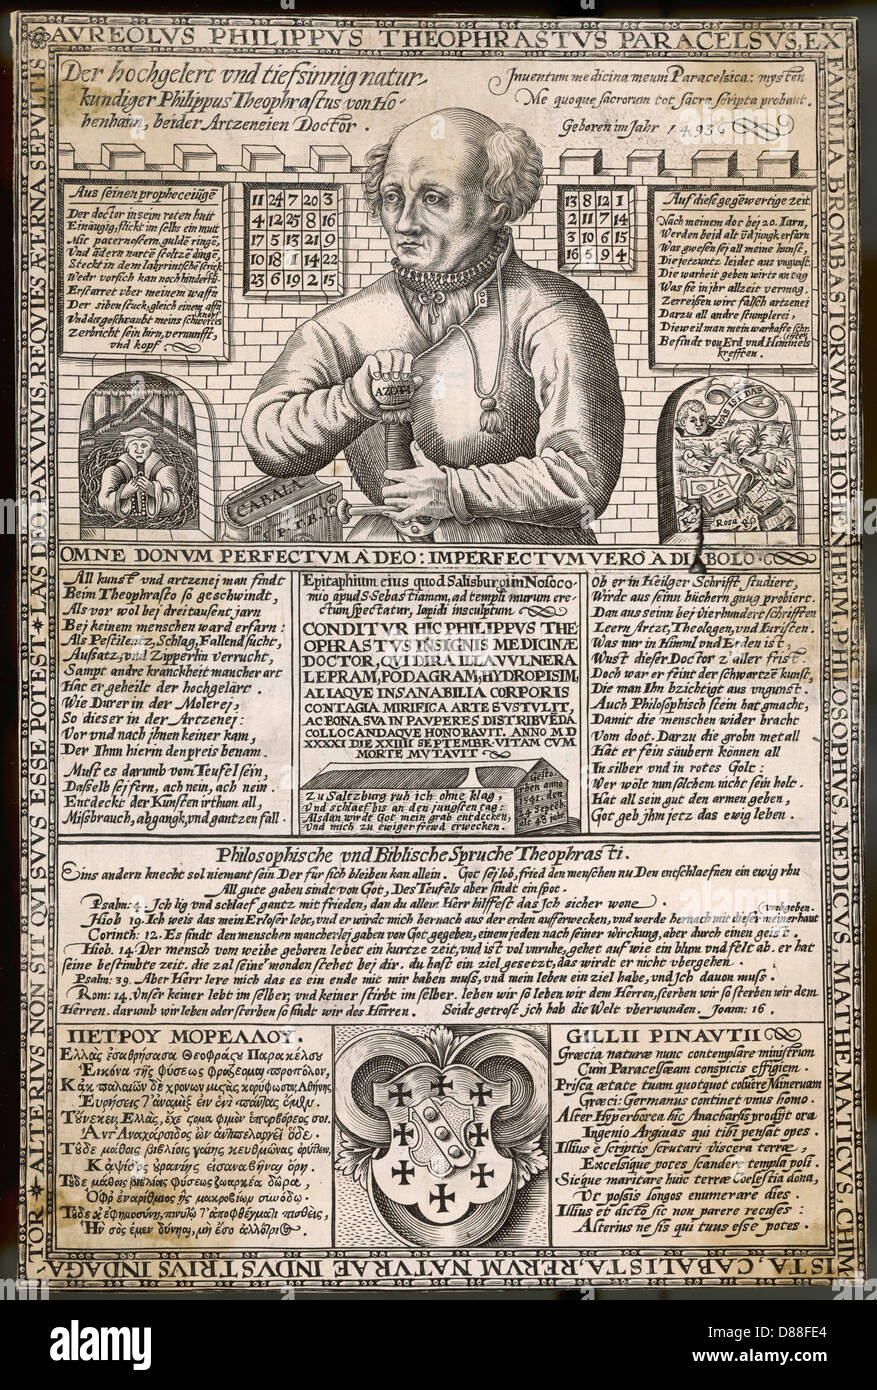 AVREOLVS PHILIPPVS THEOPHRASTVS PARACELSVS, EX
FAMILIA BROMBASTORVM AB HOHENHEIM PHILOSOPHVS, MEDICVS, MATHEMATICVS, CHIM
ISTA, CABALISTA, RERVM NATVRAE INDVSTRIVS INDAGA
TOR ★ ALTERIVS NON SIT QVI SVVS ESSE POTEST ★ LAVS DEO, PAX VIVIS, REQVIES ÆTERNA SEPVLTIS
Der hochgelert vnd tiefsinnig natur
kundiger Philippus Theophrastus von Ho-
henhaim, beider Artzeneien Doctor.
Inuentum medicina meum Paracelsica: mysten
Me quoque sacrorum tot sacra scripta probant.
Geboren im Jahr 1493
Aus seinen
Der doctor in seim roten hutt
Einäugig, stickt im selbs ein mutt
Mit paternostern, guldē ringē,
Vnd ādern narrē seeltzē dingē,
Steckt in dem labyrintsche strick
Wedr vorsich kan noch hindersich
Erstarret vber meinem waffn
Der siben stuck, gleich einem affn
Vnd des geschraubt meins schwertes knopf
Zerbricht sein hirn, vernunfft,
vnd kopf
11 24 7 20 3
4 12 25 8 16
17 5 13 21 9
10 18 1 14 22
23 6 19 2 15
13 8 12 1
2 11 7 14
3 10 6 15
16 5 9 4
Auf diese gegēwertige zeit
Nach meinem dot bej 20. Iarn,
Werden beid alt vn̄d jungk erfarn
Was gwesen sej all meine kunst,
Die jetzuntz leidet aus vngunst.
Die warheit geben wirts an tag
Was sie in jhr allzeit vermag.
Zerreissen wirt falsch artzenei
Darzu all andre stumplerei,
Dieweil man mein warhaffte schrifften
Befindt von Erd vnd Himmels
krefften.
AZOTH
CABALA
WAS IST DAS
Rosa
OMNE DONVM PERFECTVM A DEO: IMPERFECTVM VERO A DIABOLO
All kunst vnd artzenej man findt
Beim Theophrasto so geschwindt,
Als vor wol bej dreitausent jarn
Bej keinem menschen ward erfarn:
Als Pestilentz, Schlag, Fallend sucht,
Aussatz, vnd Zipperlin verrucht,
Sampt andre kranckheit mancher art
Hat er geheilt der hochgelārt.
Wie Durer in der Molerej,
So dieser in der Artzenej:
Vor vnd nach jhnen keiner kam,
Der Ihnn hierin den preis benam.
Must es darumb vom Teufel sein,
Dasselb sej fern, ach nein, ach nein.
Entdeckt der Kunsten irthum all,
Missbrauch, abgangk, vnd gantzen fall.
Epitaphium eius quod Salisburgi in Nosoco-
mio apud S. Sebastianum, ad templi murum ere-
ctum spectatur, lapidi insculptum
CONDITVR HIC PHILIPPVS THE-
OPHRASTVS INSIGNIS MEDICINÆ
DOCTOR, QVI DIRA ILLA VVLNERA
LEPRAM, PODAGRAM, HYDROPISIM,
ALIAQVE INSANABILIA CORPORIS
CONTAGIA MIRIFICA ARTE SVSTVLIT,
AC BONA SVA IN PAVPERES DISTRIBVĒDA
COLLOCANDAQVE HONORAVIT. ANNO M D
XXXXI DIE XXIIII SEPTEMBR. VITAM CVM
MORTE MVTAVIT
Zu Saltzburg ruh ich ohne klag,
Vnd schlaef bis an den jungsten tag:
Als dan wirdt Got mein grab entdecken,
Vnd mich zu ewiger frewd erwecken.
Gesto-
rben anno
1541. den
24 Septēb.
alt 48 jahr
Ob er in Heilger Schrifft studiert,
Wirdt aus seinn büchern gnug probiert.
Dan aus seinn bej vierhundert schrifften
Leern Artzt, Theologen, vnd Iuristen.
Was nur in Himml vnd Erden ist,
Wust dieser Doctor z'aller frist.
Doch war er feint der schwartzē kunst,
Die man Ihn bzichtigt aus vngunst.
Auch Philosophisch stein hat gmacht,
Damit die menschen wider bracht
Vom doot. Darzu die grobn metall
Hat er fein säubern können all
In silber vnd in rotes Golt:
Wer wölt nun solchem nicht sein holt.
Hat all sein gut den armen geben,
Got geb jhm jetz das ewig leben.
Philosophische vnd Biblische Spruche Theophrasti.
Eins andern knecht sol niemant sein Der für sich bleiben kan allein. Got sej lob, fried den menschen nu Den entschlaefnen ein ewig rhu
All gute gaben sindt von Got, Des Teufels aber sindt ein spot.
Psalm: 4. Ich lig vnd schlaef gantz mit frieden, dan du allein Herr hilffest das Ich sicher wone.
Hiob 19. Ich weis das mein Erloser lebt, vnd er wirdt mich hernach aus der erden aufferwecken, vnd werde hernach mit dieser meiner haut vmbgeben.
Corinth: 12. Es sindt den menschen mancherlej gaben von Got gegeben, einem jeden nach seiner wirckung, aber durch einen geist.
Hiob. 14. Der mensch vom weibe geboren lebet ein kurtze zeit, vnd ist vol vnruhe, gehet auf wie ein blum vnd felt ab. er hat
seine bestimbte zeit. die zal seine monden stehet bej dir. du hast ein ziel gesetzt, das wirdt er nicht vbergehen.
Psalm: 39. Aber Herr lere mich das es ein ende mit mir haben muss, vnd mein leben ein ziel habe, vnd Ich dauon muss.
Rom: 14. Vnser keiner lebt im selber, vnd keiner stirbt im selber. leben wir so leben wir dem Herren, sterben wir so sterben wir dem
Herren. darumb wir leben oder sterben so sindt wir des Herren. Seidt getrost, ich hab die Welt vberwunden. Joann: 16.
ΠΕΤΡΟΥ ΜΟΡΕΛΛΟΥ.
GILLII PINAVTII
Græcia naturæ nunc contemplare ministrum
Cum Paracelsæam conspicis effigiem.
Prisca ætate tuam quotquot coluere Mineruam
Græci: Germanus continet vnus homo.
Alter Hyperborea hic Anacharsis prodijt ora
Ingenio Argiuas qui tibi pensat opes.
Illius è scriptis scrutari viscera terræ,
Excelsique potes scandere templa poli.
Sicque maritare huic terræ Coelestia dona,
Vt possis longos enumerare dies.
Illius et dicto sic non parere recuses:
Alterius ne sis qui tuus esse potes.
alamy
Image ID: D88FE4
www.alamy.com